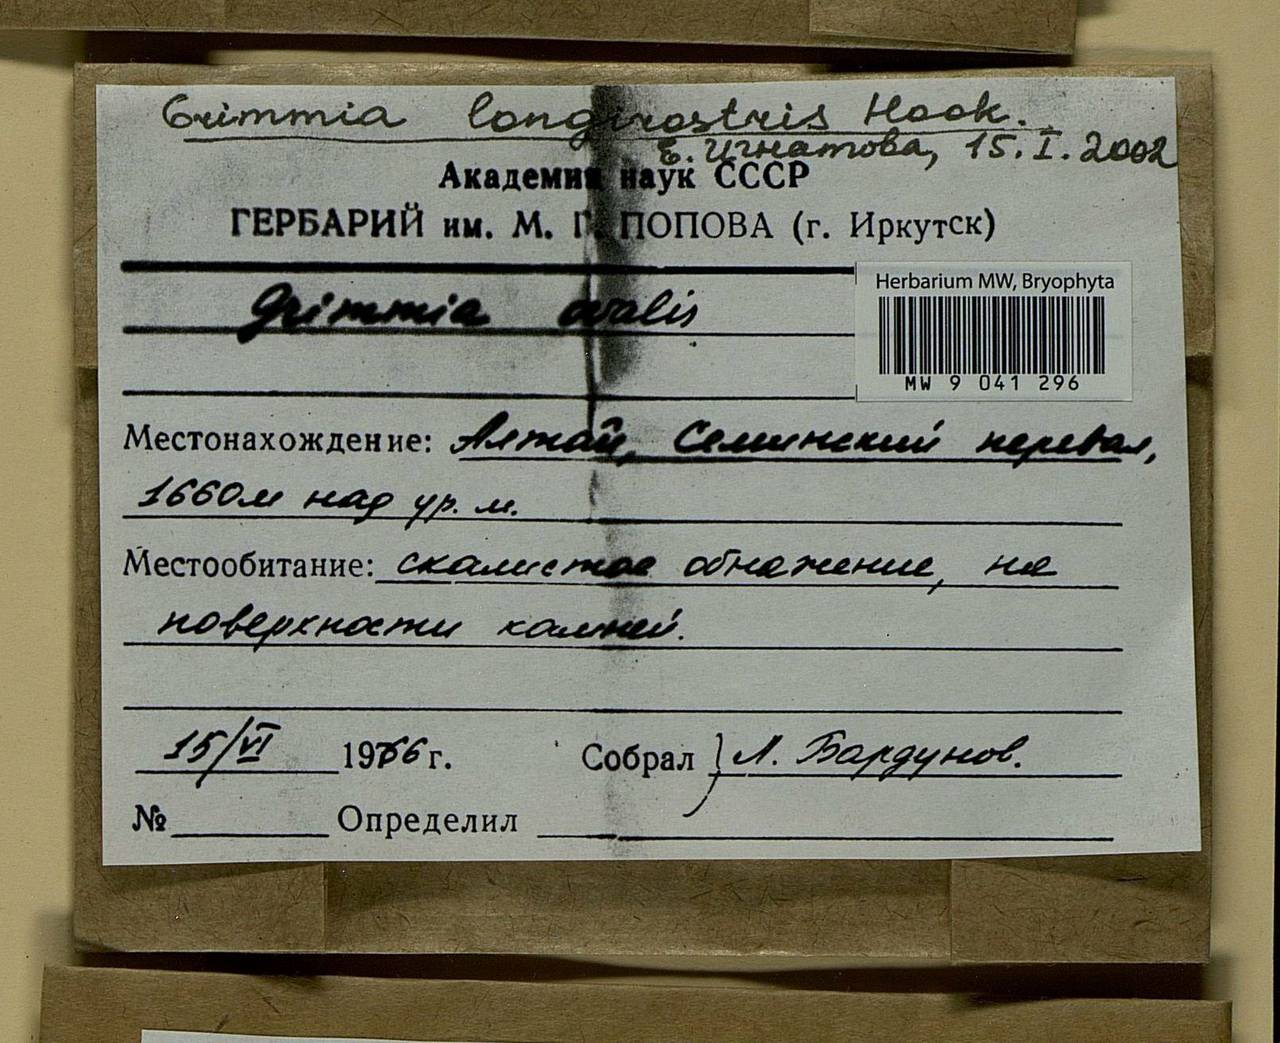 Grimmia longirostris Hook.
Е. Игнатова, 15.I.2002
Академия наук СССР
ГЕРБАРИЙ им. М. Г. ПОПОВА (г. Иркутск)
Herbarium MW, Bryophyta
Grimmia ovalis
MW 9 041 296
Местонахождение: Алтай, Семинский перевал,
1660м над ур. м.
Местообитание: скалистое обнажение, на
поверхности камней.
15/VI 1966 г. Собрал } Л. Бардунов.
№ Определил